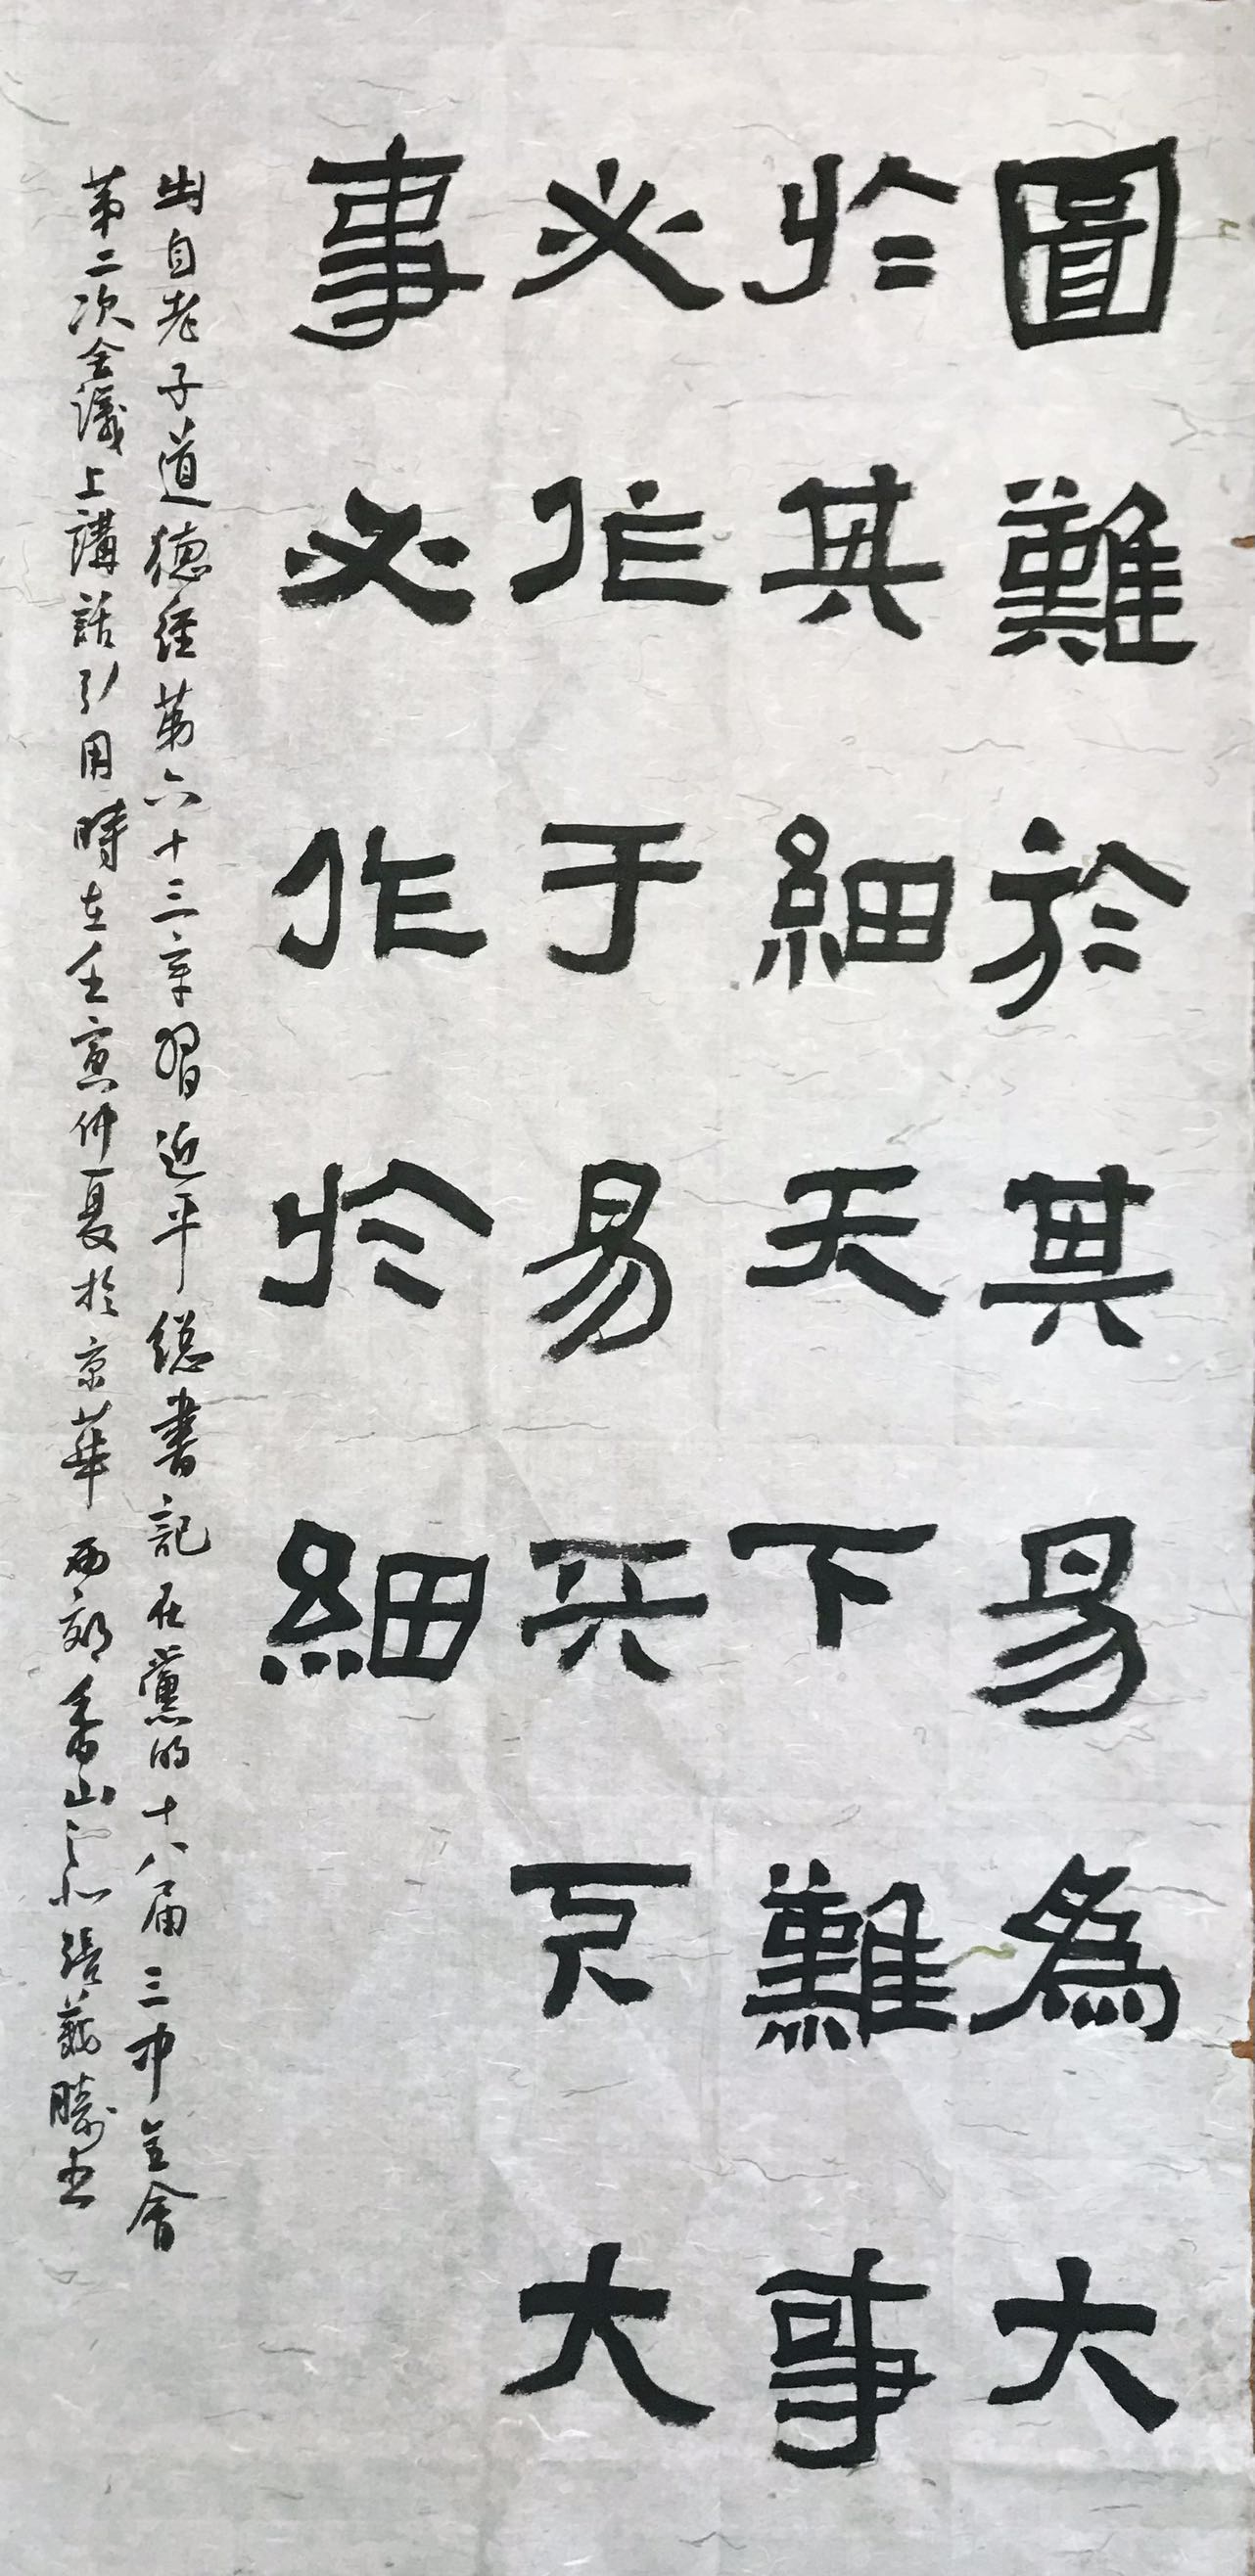 圖難於其易為大
於其細天下難事
必作于易天下大
事必作於細
出自老子道德經第六十三章習近平總書記在黨的十八届三中全會
第二次会議上講話引用時在壬寅仲夏於京華西郊香山之北張勝书